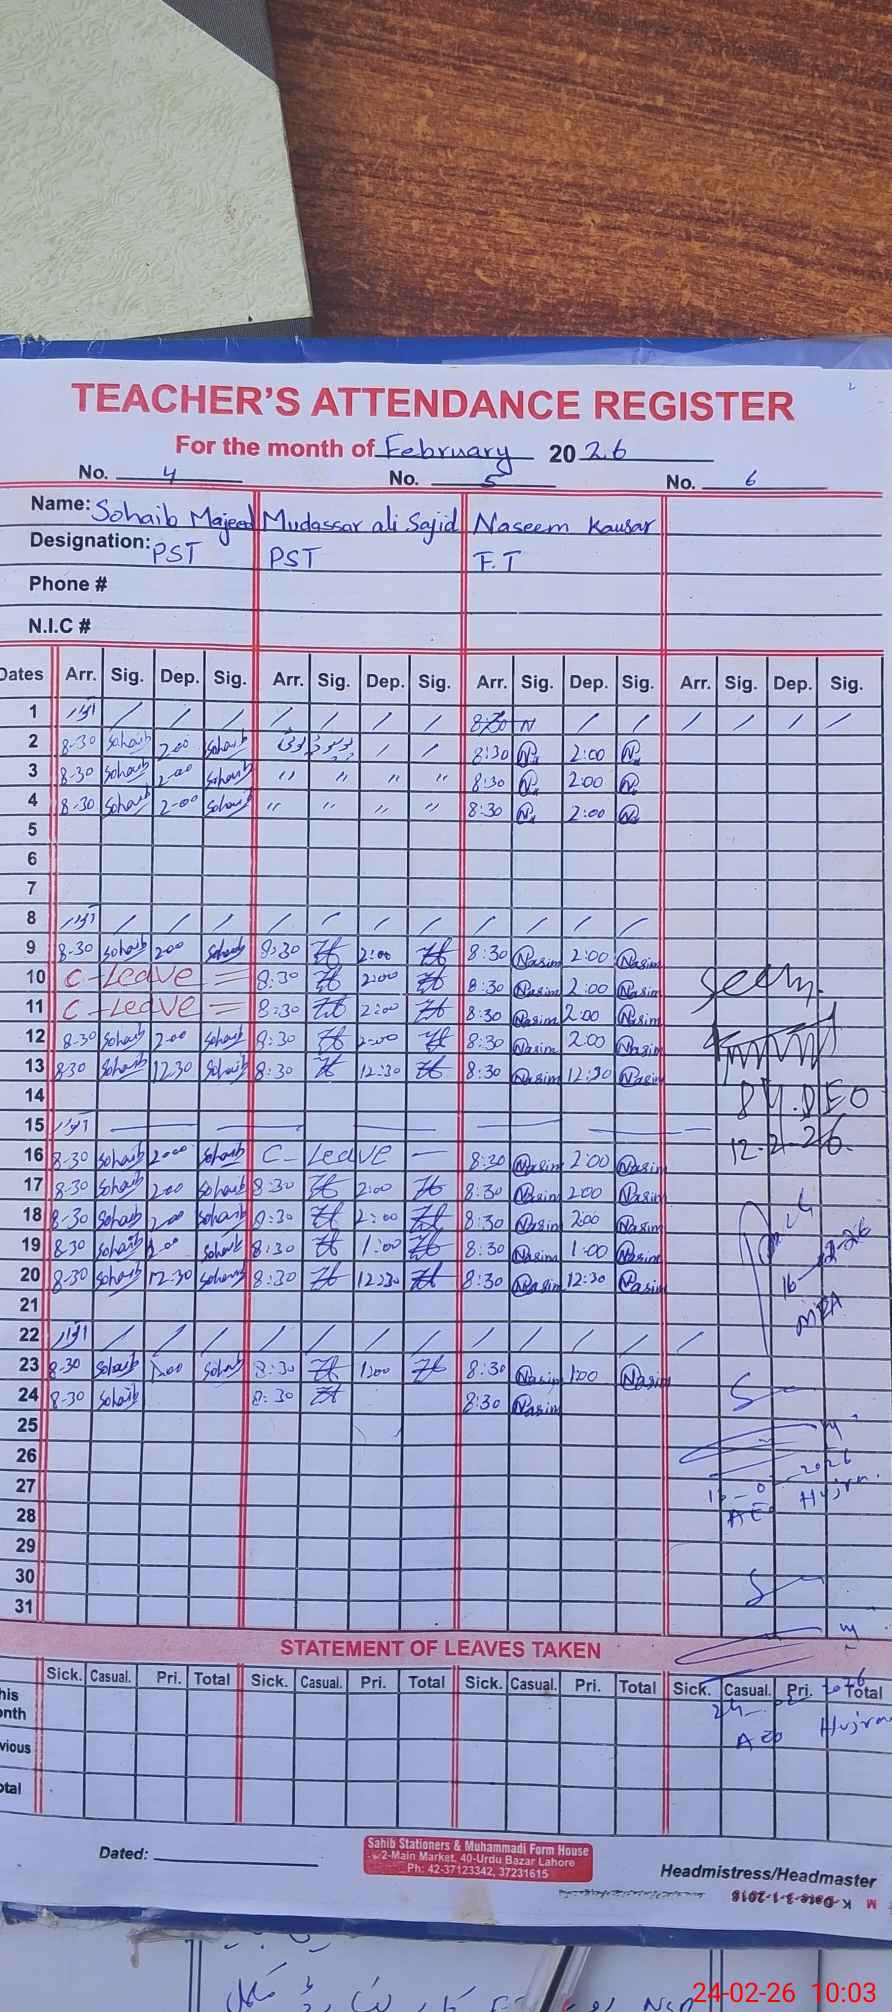 TEACHER'S ATTENDANCE REGISTER
For the month of February 2026
No. 4 No. 5 No. 6
Name: Sohaib Majeed Mudassar ali Sajid Naseem Kausar
Designation: PST PST F.T
Phone #
N.I.C #
Dates Arr. Sig. Dep. Sig. Arr. Sig. Dep. Sig. Arr. Sig. Dep. Sig. Arr. Sig. Dep. Sig.
1 اتوار / / / / / / / 8:30 N / / / / / /
2 8-30 Sohaib 2.00 Sohaib / / 8:30 N 2:00 N
3 8-30 Sohaib 2-00 Sohaib " " " " 8:30 N 2:00 N
4 8-30 Sohaib 2-00 Sohaib " " " " 8:30 N 2:00 N
5
6
7
8 اتوار / / / / / / / / / / /
9 8-30 Sohaib 200 Sohaib 8:30 2:00 8:30 Nasim 2:00 Nasim
10 C-Leave = 8:30 2:00 8:30 Nasim 2:00 Nasim
11 C-Leave = 8:30 2:00 8:30 Nasim 2:00 Nasim
12 8-30 Sohaib 200 Sohaib 8:30 2:00 8:30 Nasim 2:00 Nasim
13 8-30 Sohaib 12.30 Sohaib 8:30 12:30 8:30 Nasim 12:30 Nasim
14
DY.DEO
15 اتوار
12-2-26.
16 8-30 Sohaib 2-00 Sohaib C-Leave - 8:30 Nasim 2:00 Nasim
17 8-30 Sohaib 200 Sohaib 8:30 2:00 8:30 Nasim 2:00 Nasim
18 8-30 Sohaib 2.00 Sohaib 8:30 2:00 8:30 Nasim 2:00 Nasim
19 8-30 Sohaib 1.00 Sohaib 8:30 1:00 8:30 Nasim 1:00 Nasim
20 8-30 Sohaib 12:30 Sohaib 8:30 12:30 8:30 Nasim 12:30 Nasim
16-2-26
MEA
21
22 اتوار / / / / / / / / / / / /
23 8-30 Sohaib 1.00 Sohaib 8:30 1:00 8:30 Nasim 1:00 Nasim
24 8-30 Sohaib 8:30 8:30 Nasim
25
26
27
2026
AEO Hujra
28
29
30
31
STATEMENT OF LEAVES TAKEN
Sick. Casual. Pri. Total Sick. Casual. Pri. Total Sick. Casual. Pri. Total Sick. Casual. Pri. Total
his
nth
24 2026
AEO Hujra
vious
otal
Dated:
Sahib Stationers & Muhammadi Form House
2-Main Market, 40-Urdu Bazar Lahore
Ph: 42-37123342, 37231615
Headmistress/Headmaster
24-02-26 10:03